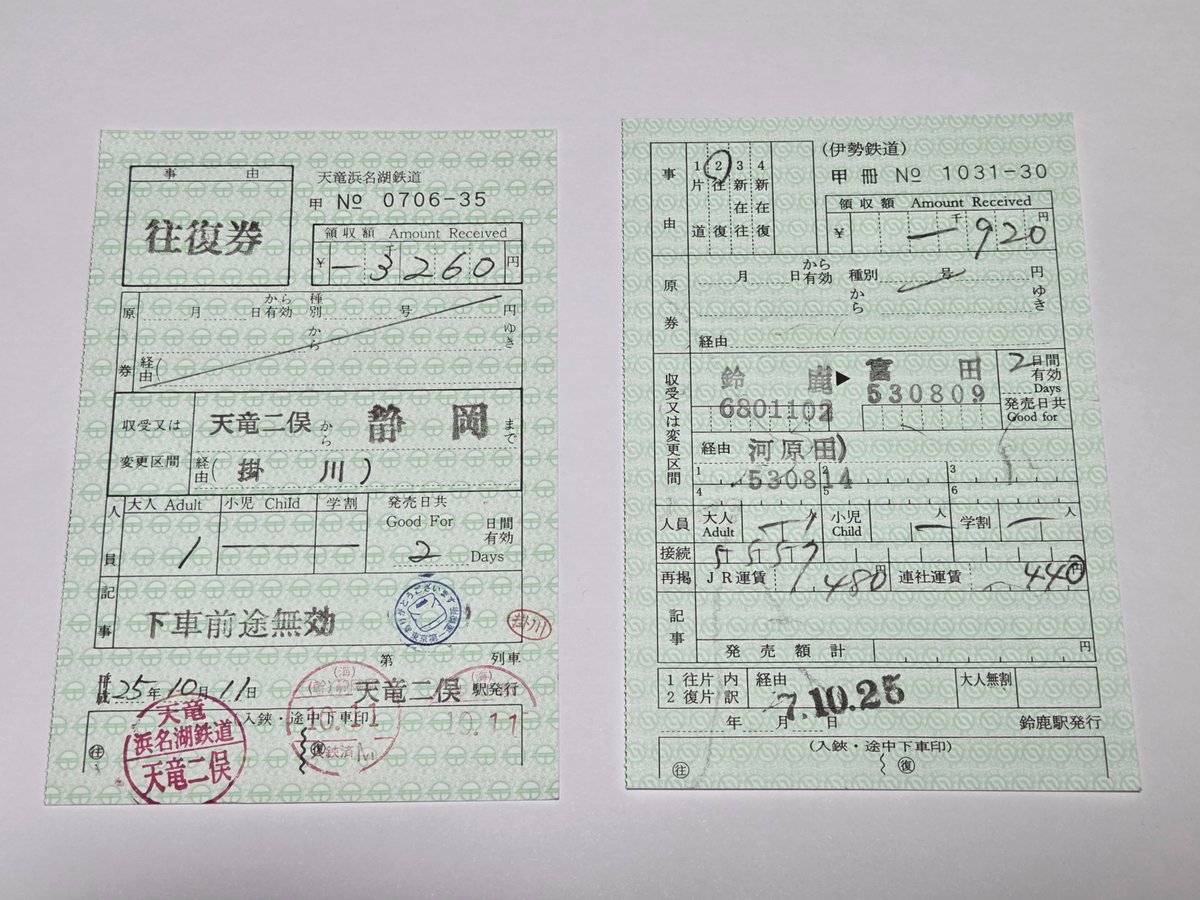 事 由
往復券
天竜浜名湖鉄道
甲 No 0706-35
領収額 Amount Received
¥ 一3260 円
千
原券
月 日から有効 種別 号 円
から ゆき
経由(
収受又は変更区間
天竜二俣 から 静岡 まで
経由( 掛川 )
人員
大人 Adult 小児 Child 学割
1
発売日共
Good For 日間有効
2 Days
記事
下車前途無効
ありがとうございます
掛川
第 列車
25年10月11日
天竜二俣 駅発行
(入鋏・途中下車印)
往 復
天竜
浜名湖鉄道
天竜二俣
(海)
10.11
(海)
10.11
事由
1 片道
2 往復
3 新在往
4 新在復
(伊勢鉄道)
甲 冊 No 1031-30
領収額 Amount Received
¥ 一920
千 円
原券
月 日から有効 種別 号 円
から ゆき
経由
収受又は変更区間
鈴鹿 ▶ 富田
6801102 530809
2 日間有効
Days
発売日共
Good for
経由 河原田)
530814
1 2 3
4 5 6
人員 大人 Adult 人 小児 Child 人 学割 人
接続
再掲 JR運賃 480 円 連社運賃 440 円
記事
発売額計 円
1 往片 内
2 復片 訳
経由
大人無割
-7.10.25
年 月 日 鈴鹿駅発行
(入鋏・途中下車印)
往 復